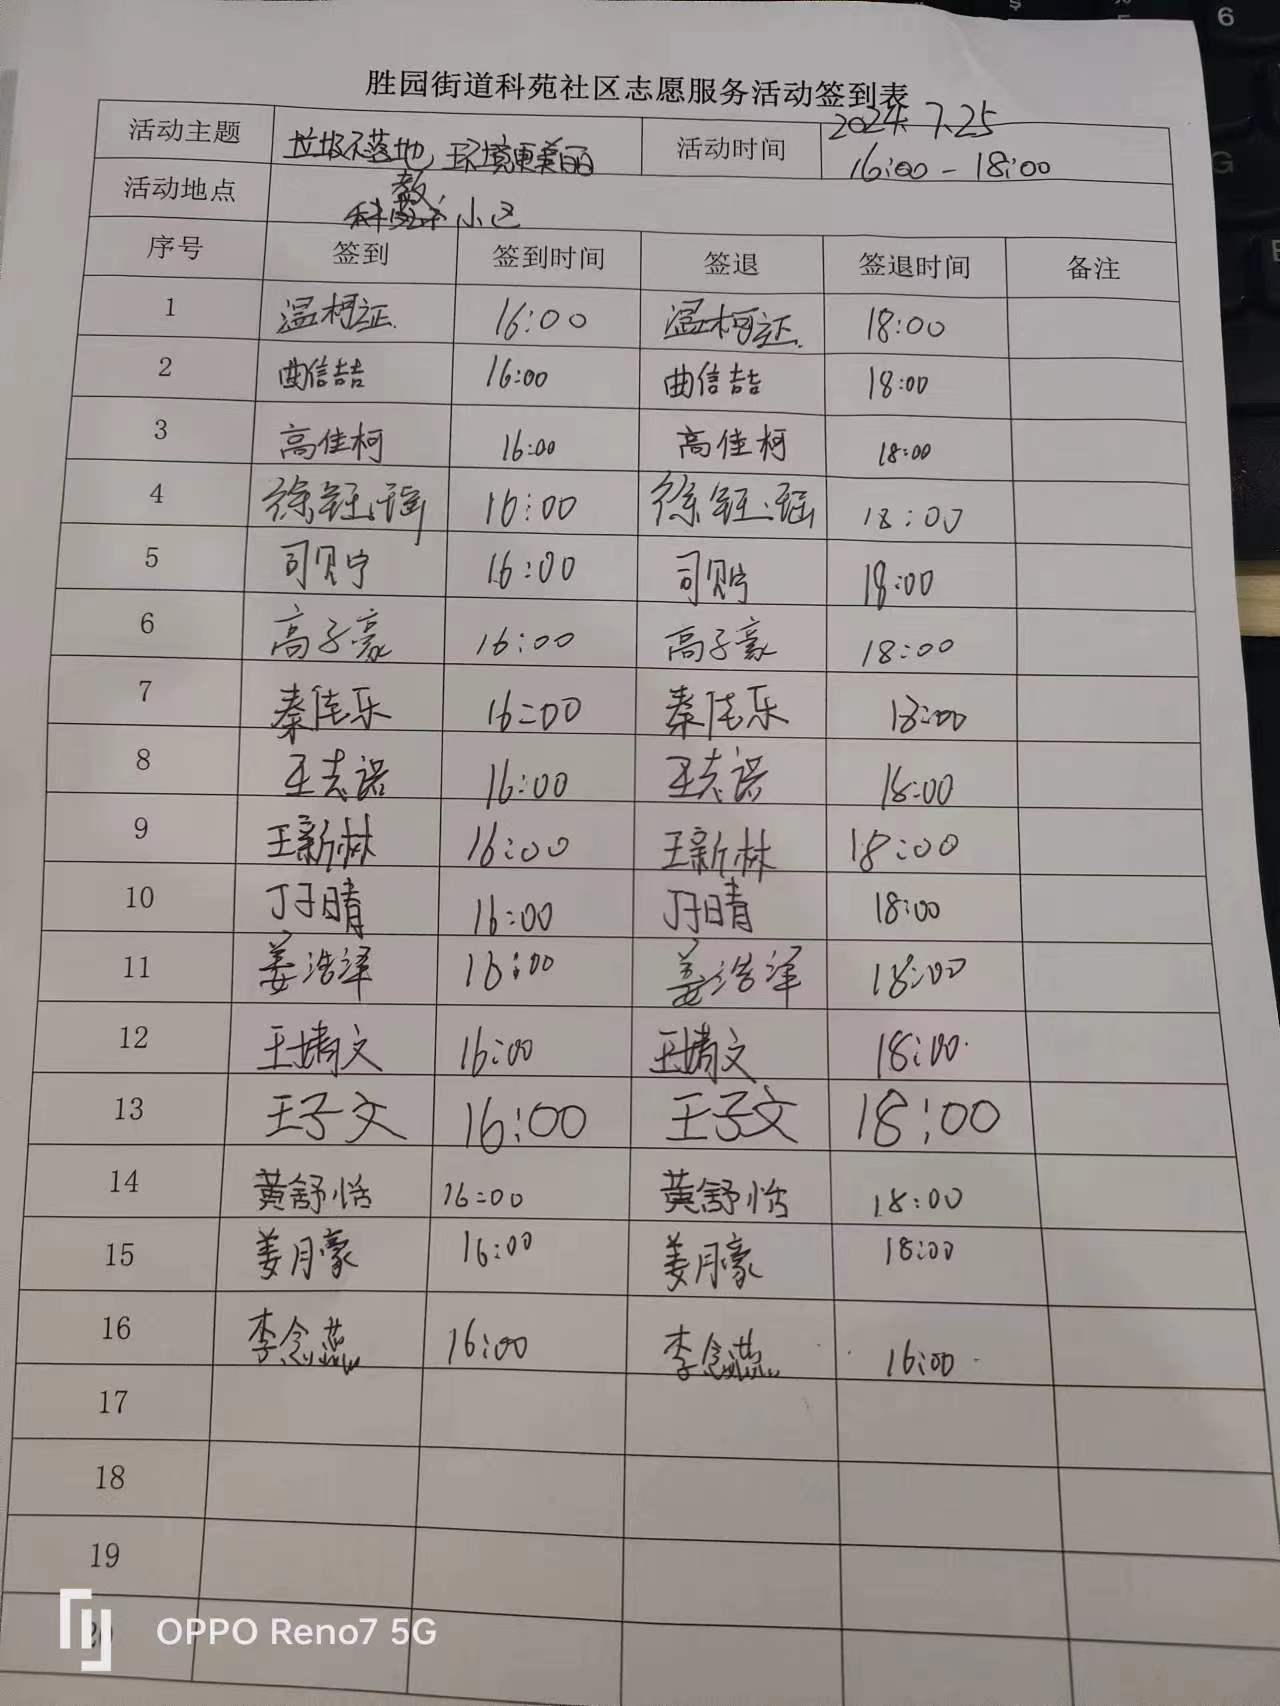 胜园街道科苑社区志愿服务活动签到表
活动主题 垃圾不落地,环境更美丽 活动时间 2024.7.25 16:00-18:00
活动地点 科教小区
序号 签到 签到时间 签退 签退时间 备注
1 温柯证 16:00 温柯证 18:00
2 曲信喆 16:00 曲信喆 18:00
3 高佳柯 16:00 高佳柯 18:00
4 徐钰瑶 16:00 徐钰瑶 18:00
5 司贝宁 16:00 司贝宁 18:00
6 高子豪 16:00 高子豪 18:00
7 秦佳乐 16:00 秦佳乐 18:00
8 王志诺 16:00 王志诺 18:00
9 王新林 16:00 王新林 18:00
10 丁子晴 16:00 丁子晴 18:00
11 姜浩泽 16:00 姜浩泽 18:00
12 王婧文 16:00 王婧文 18:00
13 王子文 16:00 王子文 18:00
14 黄舒恬 16:00 黄舒恬 18:00
15 姜月豪 16:00 姜月豪 18:00
16 李念燕 16:00 李念燕 16:00
17
18
19
20
OPPO Reno7 5G